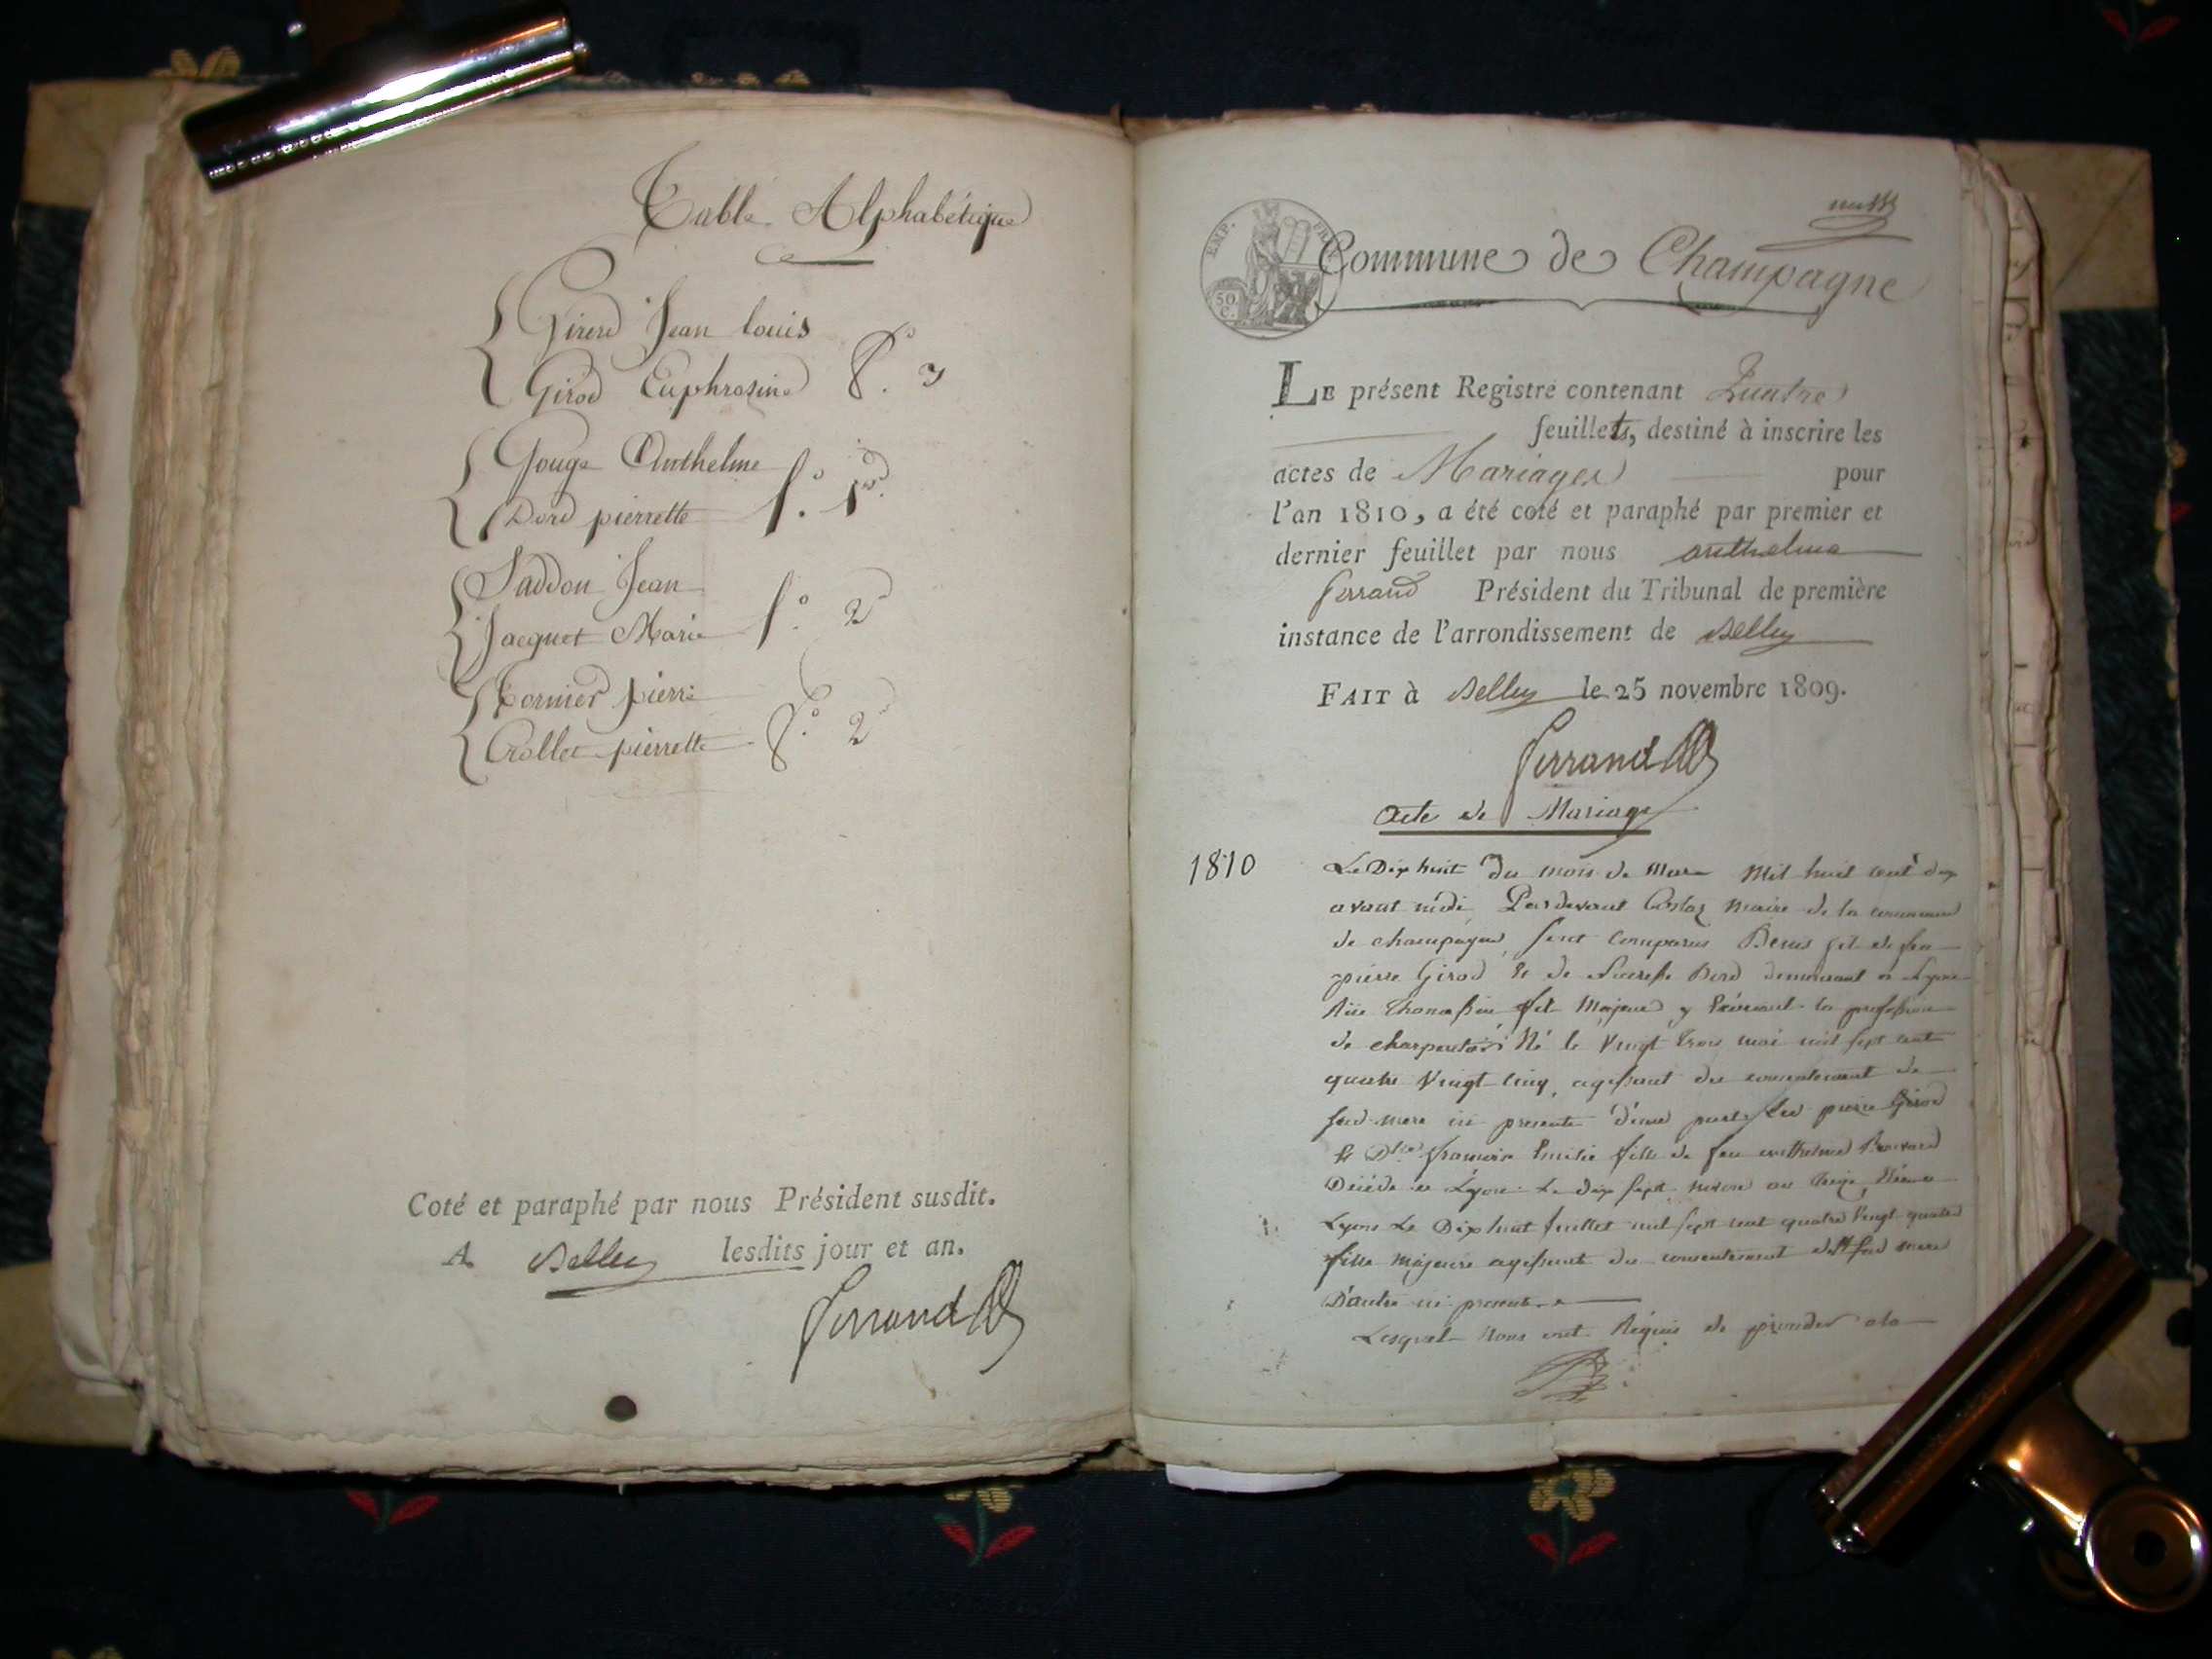 Table Alphabétique
Girerd Jean louis
Girod Euphrosine f.o 3
Gouge Anthelme
Dord pierrette f.o 1er
Saddon Jean
Jacquet Marie f.o 2
Cornier pierre
Crollet pierrette f.o 2
Coté et paraphé par nous Président susdit.
A Belley lesdits jour et an.
Ferrand
EMP. FR
50 C.
Commune de Champagne
LE présent Registre contenant Quatre
feuillets, destiné à inscrire les
actes de Mariages pour
l'an 1810, a été coté et paraphé par premier et
dernier feuillet par nous anthelme
ferrand Président du Tribunal de première
instance de l'arrondissement de Belley
FAIT à Belley le 25 novembre 1809.
Ferrand
Acte de Mariage
1810
Le Dix huit du mois de Mars Mil huit cent dix
avant midi Pardevant Costaz maire de la commune
de champagne sont comparus Denis fil de feu
pierre Girod et de Dord demeurant a Lyon
Rüe fil Majeur y la profession
de charpentier Né le Vingt trois mai mil sept cent
quatre Vingt cinq, agissant du consentement de
sad mere ici presente d'une part pierre Girod
et Dlle fille de feu anthelme
Décédé a Lyon Le dix sept nivose an treize
Lyon Le Dix huit Juillet mil sept cent quatre Vingt quatre
fille majeure agissante du consentement de sad mere
D'autre ici presente
Lesquels Nous ont Requis de proceder a la